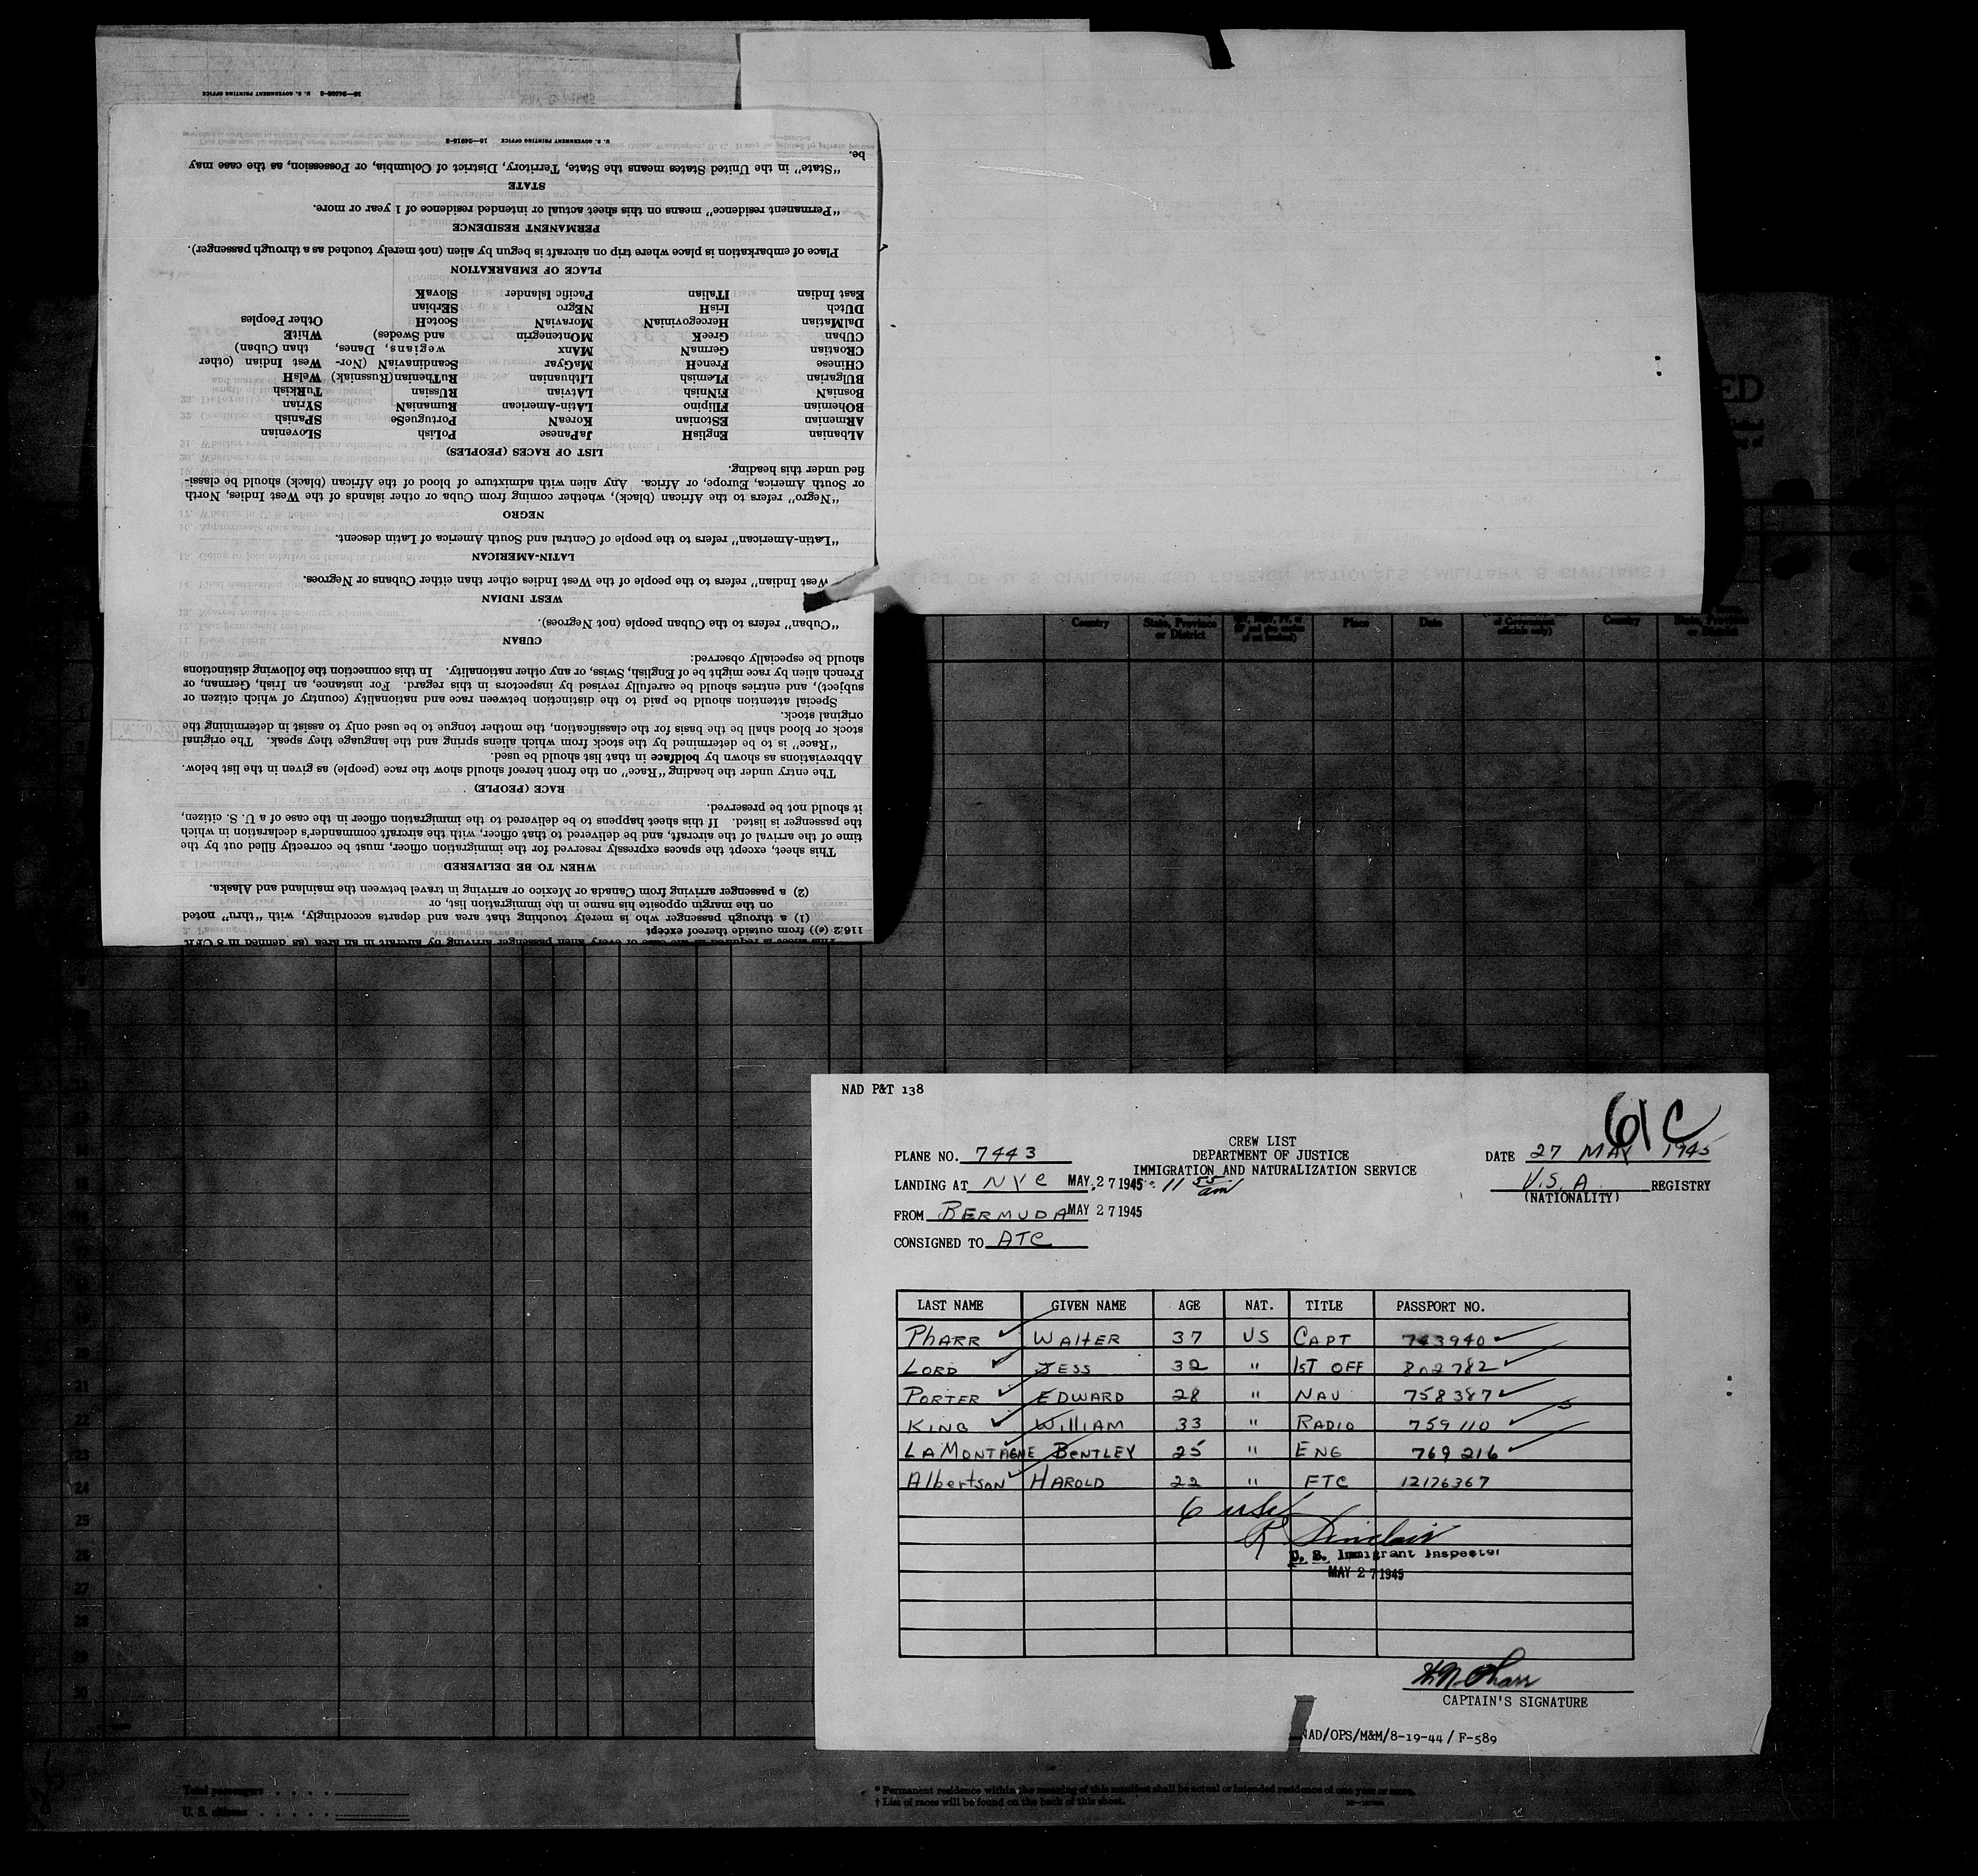 16—24598-3 U. S. GOVERNMENT PRINTING OFFICE
This sheet is required in the case of every alien passenger arriving by aircraft in an area (as defined in 8 CFR
116.2 (e)) from outside thereof except
(1) a through passenger who is merely touching that area and departs accordingly, with "thru" noted
on the margin opposite his name in the immigration list, or
(2) a passenger arriving from Canada or Mexico or arriving in travel between the mainland and Alaska.
WHEN TO BE DELIVERED
This sheet, except the spaces expressly reserved for the immigration officer, must be correctly filled out by the
time of the arrival of the aircraft, and be delivered to that officer, with the aircraft commander's declaration in which
the passenger is listed. If this sheet happens to be delivered to the immigration officer in the case of a U. S. citizen,
it should not be preserved.
RACE (PEOPLE)
The entry under the heading "Race" on the front hereof should show the race (people) as given in the list below.
Abbreviations as shown by boldface in that list should be used.
"Race" is to be determined by the stock from which aliens spring and the language they speak. The original
stock or blood shall be the basis for the classification, the mother tongue to be used only to assist in determining the
original stock.
Special attention should be paid to the distinction between race and nationality (country of which citizen or
subject), and entries should be carefully revised by inspectors in this regard. For instance, an Irish, German, or
French alien by race might be of English, Swiss, or any other nationality. In this connection the following distinctions
should be especially observed:
CUBAN
"Cuban" refers to the Cuban people (not Negroes).
WEST INDIAN
West Indian" refers to the people of the West Indies other than either Cubans or Negroes.
LATIN-AMERICAN
"Latin-American" refers to the people of Central and South America of Latin descent.
NEGRO
"Negro" refers to the African (black), whether coming from Cuba or other islands of the West Indies, North
or South America, Europe, or Africa. Any alien with admixture of blood of the African (black) should be classi-
fied under this heading.
LIST OF RACES (PEOPLES)
ALbanian EnglisH JaPanese PoLish SLovenian
ARmenian EStonian KoreaN PortugueSe SPanish
BOhemian FIlipino LAtin-American RumaniaN SYrian
BosniaN FiNnish LAtvian RUssian TuRkish
BUlgarian FLemish LIthuanian RuThenian (Russniak) WelsH
CHinese FrencH MaGyar ScandinaviaN (Nor- West Indian (other
CROatian GermaN MAnx wegians, Danes, than Cuban)
CUban GreeK MOntenegrin and Swedes) WhitE
DalMatian HercegoviniaN MoraviaN ScotcH Other Peoples
DUtch IrisH NEgro SErbian
EasT Indian ITalian Pacific Islander SlovaK
PLACE OF EMBARKATION
Place of embarkation is place where trip on aircraft is begun by alien (not merely touched as a through passenger).
PERMANENT RESIDENCE
"Permanent residence" means on this sheet actual or intended residence of 1 year or more.
STATE
"State" in the United States means the State, Territory, District of Columbia, or Possession, as the case may
be.
U. S. GOVERNMENT PRINTING OFFICE 16—24915-2
LIST OF U S CIVILIANS AND FOREIGN NATIONALS (MILITARY & CIVILIANS)
ED
Country State, Province or District Place Date of Government officials only) Country State, Province or District
NAD P&T 138
61C
CREW LIST
PLANE NO. 7443 DEPARTMENT OF JUSTICE DATE 27 MAY 1945
IMMIGRATION AND NATURALIZATION SERVICE
LANDING AT NYC MAY 27 1945 11 55 am U.S.A. REGISTRY
(NATIONALITY)
FROM BERMUDA MAY 27 1945
CONSIGNED TO ATC
LAST NAME GIVEN NAME AGE NAT. TITLE PASSPORT NO.
PHARR WALTER 37 US CAPT 743940
LORD JESS 32 " 1ST OFF 802782
PORTER EDWARD 28 " NAV 758387
KING WILLIAM 33 " RADIO 759110
LAMONTAGNE BENTLEY 25 " ENG 769216
Albertson HAROLD 22 " FTC 12176367
6 usc
R Sinclair
U. S. Immigrant Inspector
MAY 27 1945
W N Pharr
CAPTAIN'S SIGNATURE
NAD/OPS/M&M/8-19-44/ F-589
21
22
23
24
25
26
27
28
29
30
Total passengers . . . .
U. S. citizens . . . . .
* Permanent residence within the meaning of this manifest shall be actual or intended residence of one year or more.
† List of races will be found on the back of this sheet.